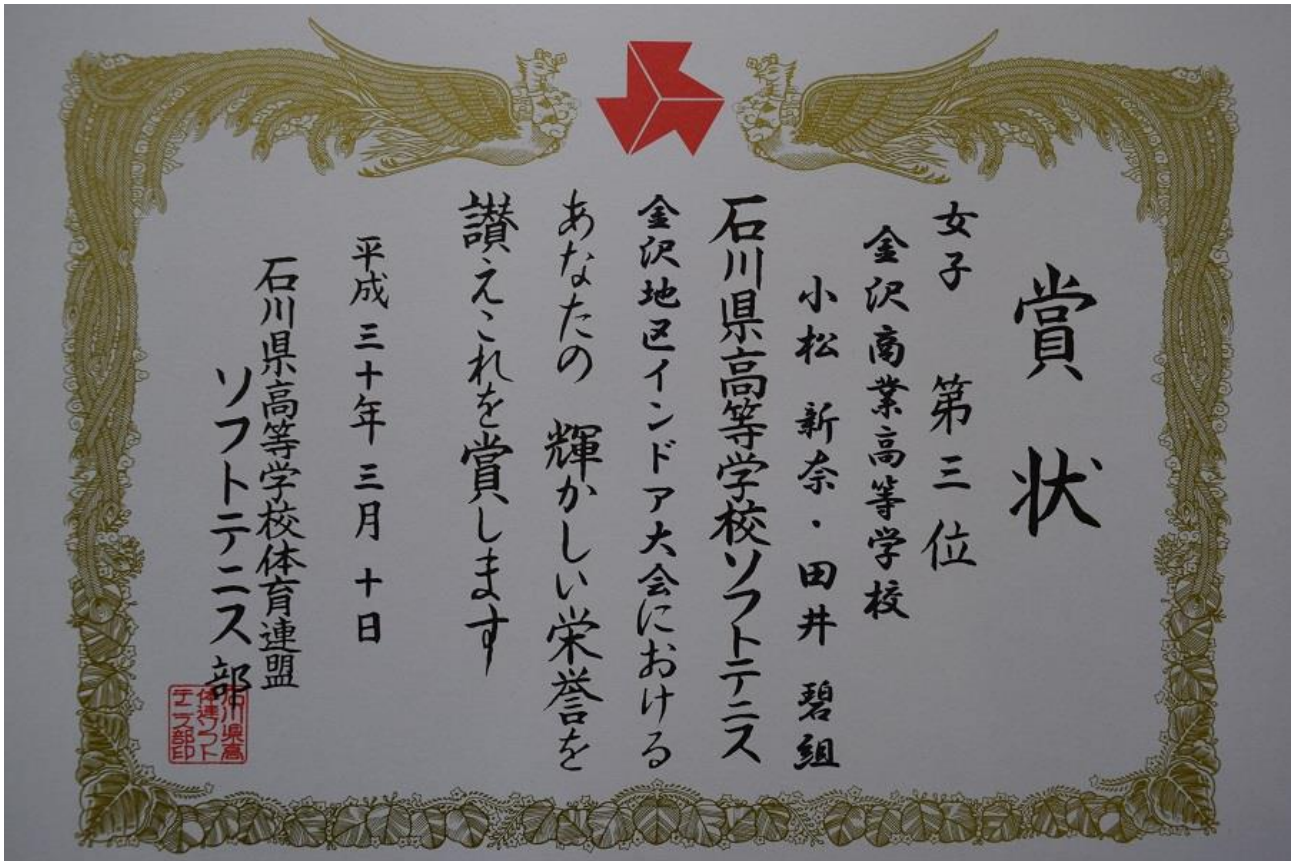 賞状
女子 第三位
金沢商業高等学校
小松 新奈・田井 碧組
石川県高等学校ソフトテニス
金沢地区インドア大会における
あなたの 輝かしい栄誉を
讃えこれを賞します
平成三十年三月十日
石川県高等学校体育連盟
ソフトテニス部
石川県高
体連ソフト
テニス部印